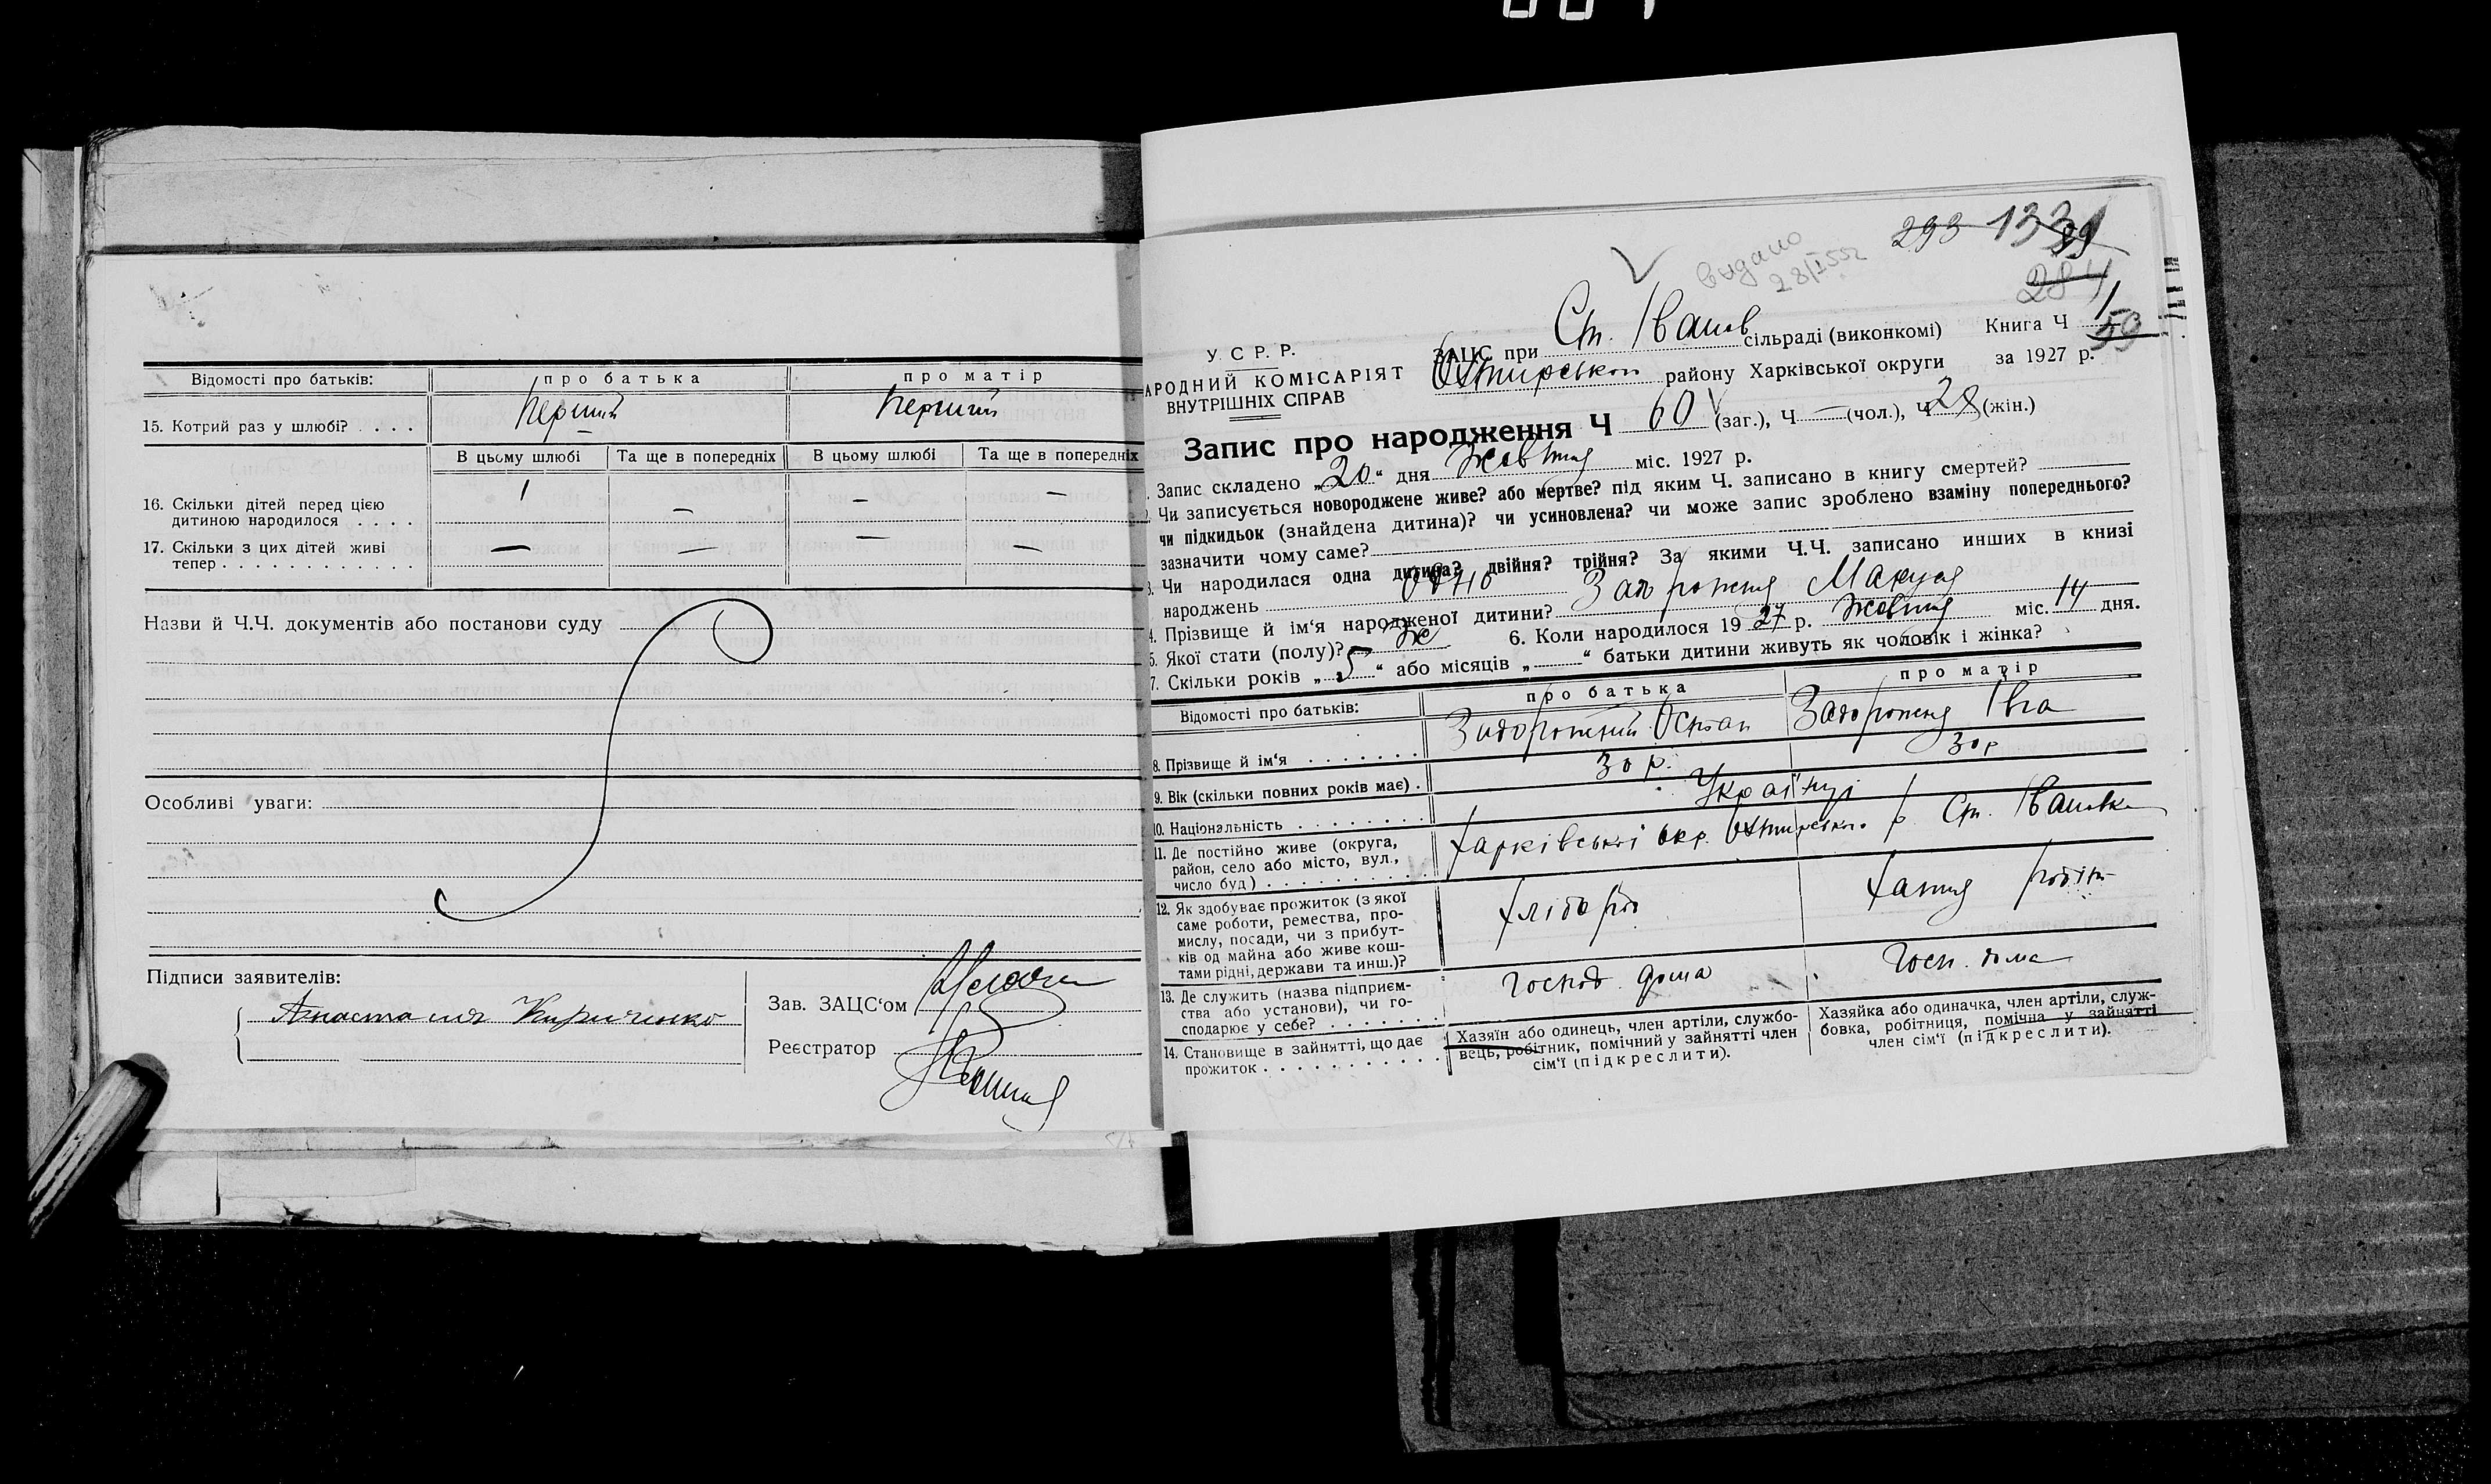 Відомості про батьків: про батька про матір
15. Котрий раз у шлюбі? . . . . Перший Перший
В цьому шлюбі Та ще в попередніх В цьому шлюбі Та ще в попередніх
16. Скільки дітей перед цією 1 — — —
дитиною народилося . . . .
17. Скільки з цих дітей живі — — — —
тепер . . . . . . . . . . . .
Назви й Ч.Ч. документів або постанови суду
Особливі уваги:
Підписи заявителів:
Анастасия Кириченко
Зав. ЗАЦС‘ом
Реєстратор
293 1331
99
видано
28/I 55г
284
У. С. Р. Р.
АРОДНИЙ КОМІСАРІЯТ
ВНУТРІШНІХ СПРАВ
ЗАЦС при Ст. Іванов сільраді (виконкомі) Книга Ч 1
50
Охтирськои району Харківської округи за 1927 р.
Запис про народження Ч 60 (заг.), Ч — (чол.), Ч 28 (жін.)
Запис складено „20“ дня Жовтня міс. 1927 р.
Чи записується новороджене живе? або мертве? під яким Ч. записано в книгу смертей?
чи підкидьок (знайдена дитина)? чи усиновлена? чи може запис зроблено взаміну попереднього?
зазначити чому саме?
3. Чи народилася одна дитина? двійня? трійня? За якими Ч.Ч. записано инших в книзі
народжень одно
4. Прізвище й ім‘я народженої дитини? Задорожня
5. Якої стати (полу)? Ж 6. Коли народилося 19 27 р. Жовтня міс. 14 дня.
7. Скільки років „5“ або місяців „ “ батьки дитини живуть як чоловік і жінка?
Відомості про батьків: про батька про матір
8. Прізвище й ім‘я . . . . . . . Задорожний Остап Задорожня Івга
9. Вік (скільки повних років має) . 30 р. 30 р
10. Національність . . . . . . . . Українці
11. Де постійно живе (округа, Харківської окр. Охтирського р. Ст. Івановка
район, село або місто, вул.,
число буд) . . . . . . . . . .
12. Як здобуває прожиток (з якої Хлібороб Хатня робітн
саме роботи, ремества, про-
мислу, посади, чи з прибут-
ків од майна або живе кош-
тами рідні, держави та инш.)?
13. Де служить (назва підприєм- Господ. дома Госп. дома
ства або установи), чи го-
сподарює у себе? . . . . . . .
14. Становище в зайнятті, що дає
прожиток . . . . . . . . . . .
Хазяїн або одинець, член артіли, службо-
вець, робітник, помічний у зайнятті член
сім‘ї (підкреслити).
Хазяйка або одиначка, член артіли, служ-
бовка, робітниця, помічна у зайнятті
член сім‘ї (підкреслити).